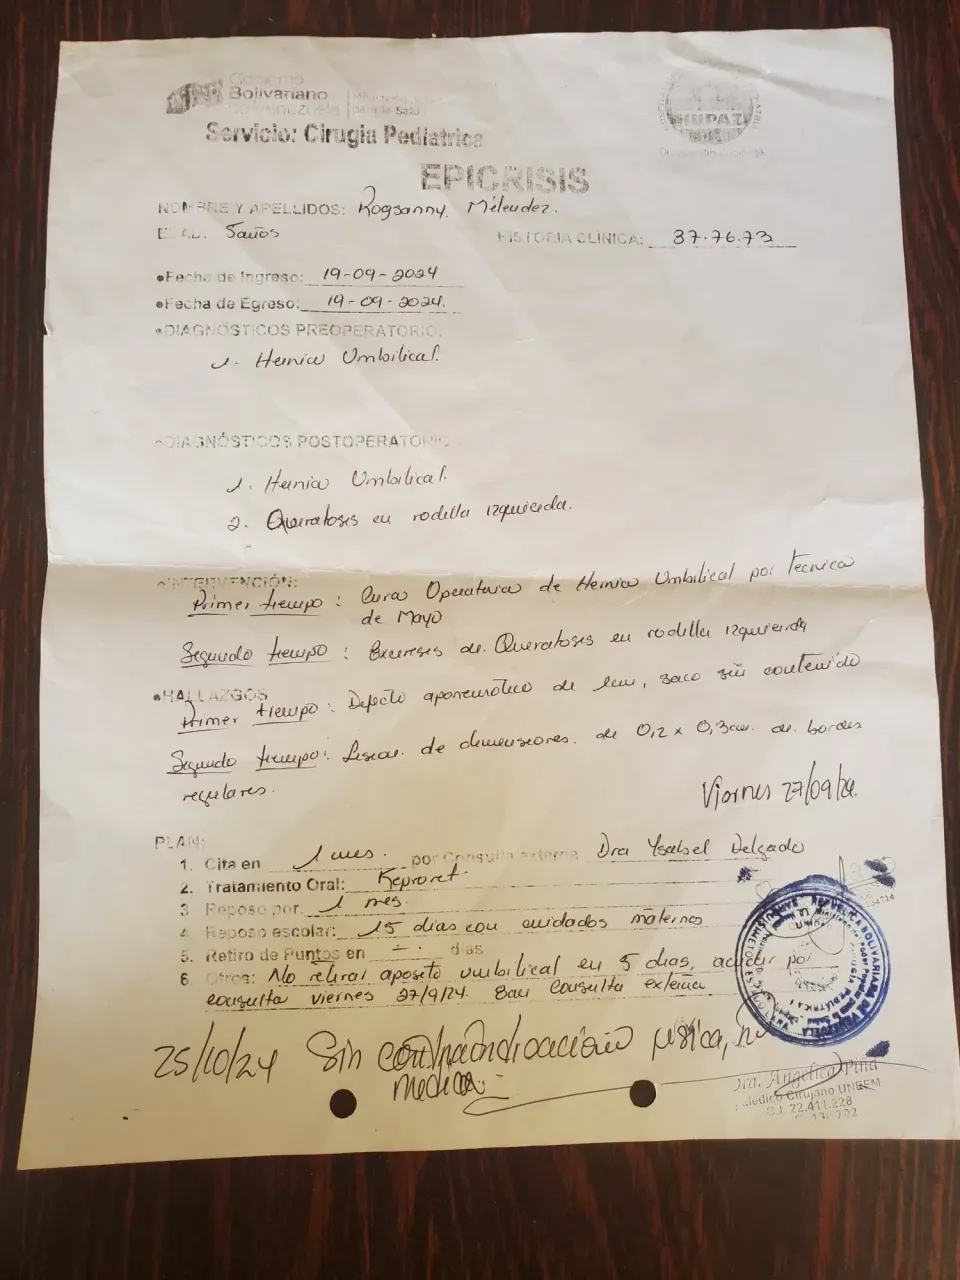 Gobierno
Bolivariano
de Venezuela
HUPAZ
Servicio: Cirugia Pediatrica
EPICRISIS
NOMBRE Y APELLIDOS: Rogsanny Meléndez.
EDAD. 5años
HISTORIA CLÍNICA: 37.76.73
•Fecha de Ingreso: 19-09-2024
•Fecha de Egreso: 19-09-2024.
•DIAGNÓSTICOS PREOPERATORIO:
1. Hernia Umbilical.
•DIAGNÓSTICOS POSTOPERATORIO
1. Hernia Umbilical.
2. Queratosis en rodilla izquierda.
•INTERVENCIÓN:
Primer tiempo: Cura Operatoria de Hernia Umbilical por tecnica
de Mayo
Segundo tiempo: Exeresis de Queratosis en rodilla izquierda
•HALLAZGOS
Primer tiempo: Defecto aponeurótico de 1cm, saco sin contenido
Segundo tiempo: de dimensiones. de 0,2 x 0,3cm. de bordes
regulares.
Viernes 27/09/24.
PLAN:
1. Cita en 1 mes. por Consulta externa Dra Ysabel Delgado
2. Tratamiento Oral: Kepronet
3 Reposo por. 1 mes.
4. Reposo escolar: 15 dias con cuidados maternos
5. Retiro de Puntos en -. dias
6 Otros: No retirar aposito umbilical en 5 dias, acudir por
consulta viernes 27/9/24. Consulta externa
25/10/24 Sin contraindicación física, ni
médica.
Dra. Angélica Piña
Médico Cirujano UNEFM
C.I. 22.411.228